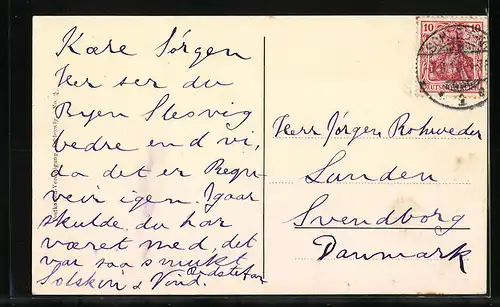 Kære Jørgen
Her ser du
Byen Slesvig
bedre end vi,
da det er Regn-
veir igen. Igaar
skulde du har
været med, det
var saa smukt
Solskin & Vind.
Herr Jørgen Rohweder
Lunden
Svendborg
Danmark
10 10